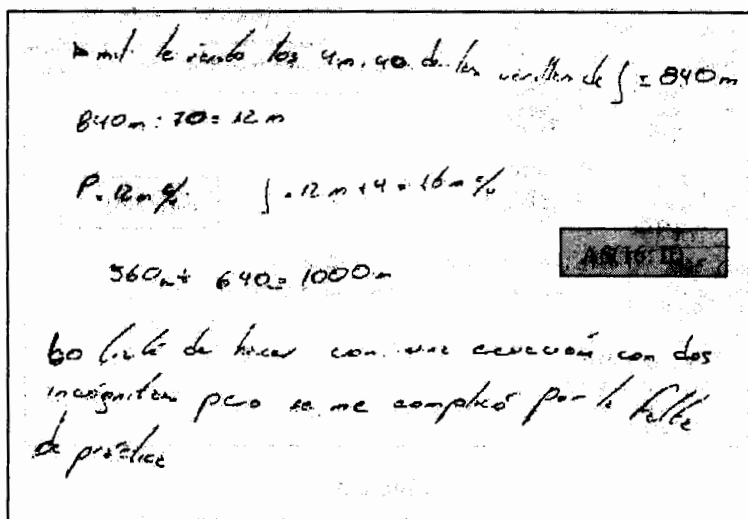 mil le resto los 4m. 40 de las varillas de ∫ = 840m
840m : 70 = 12 m
P = 12 m c/u. ∫ = 12 m + 4 = 16 m c/u
360m + 640 = 1000m
Lo traté de hacer con una ecuación con dos
incógnitas pero se me complicó por la falta
de práctica